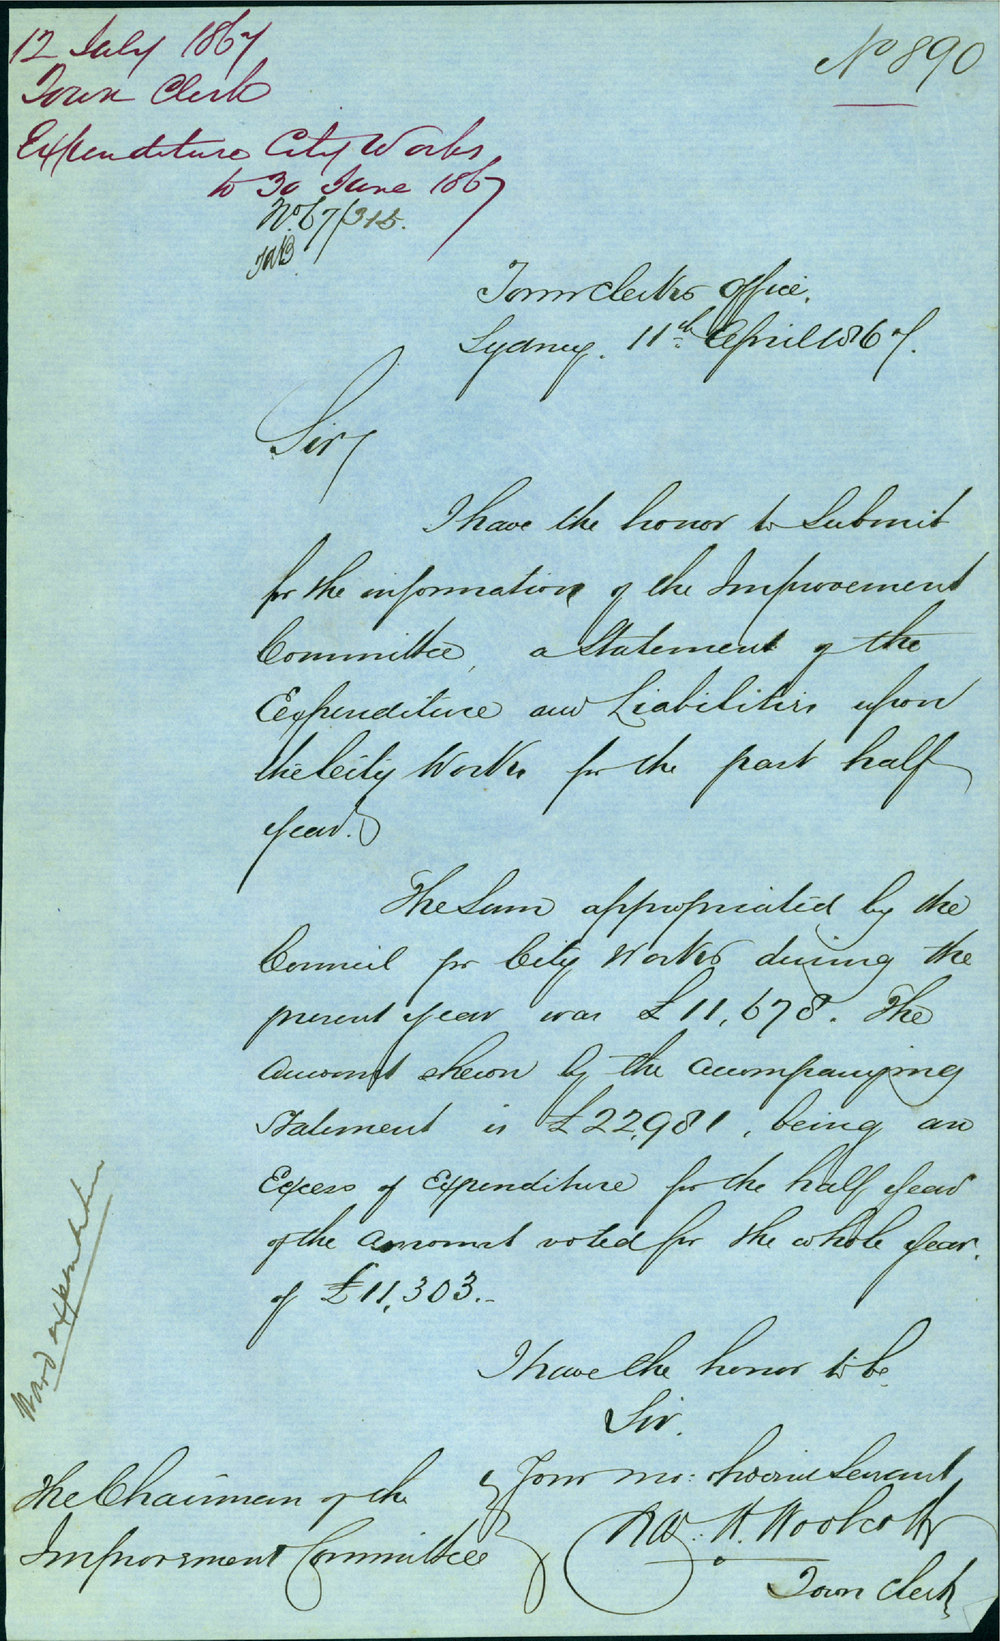 12 July 1867
Town Clerk
Expenditure City Works
to 30 June 1867
No 67/315.
No 890
Town Clerks Office,
Sydney. 11th April 1867.
Sir,
I have the honor to submit
for the information of the Improvement
Committee, a Statement of the
Expenditure and Liabilities upon
the City Works for the past half
year.
The Sum appropriated by the
Council for City Works during the
present year was £11,678. The
amount shewn by the accompanying
Statement is £22,981, being an
Excess of Expenditure for the half year
of the amount voted for the whole year.
of £11,303.-
I have the honor to be
Sir.
Your mo: obedient Servant,
The Chairman of the
Improvement Committee
W. H. Woolcott
Town Clerk
Ward expenditure